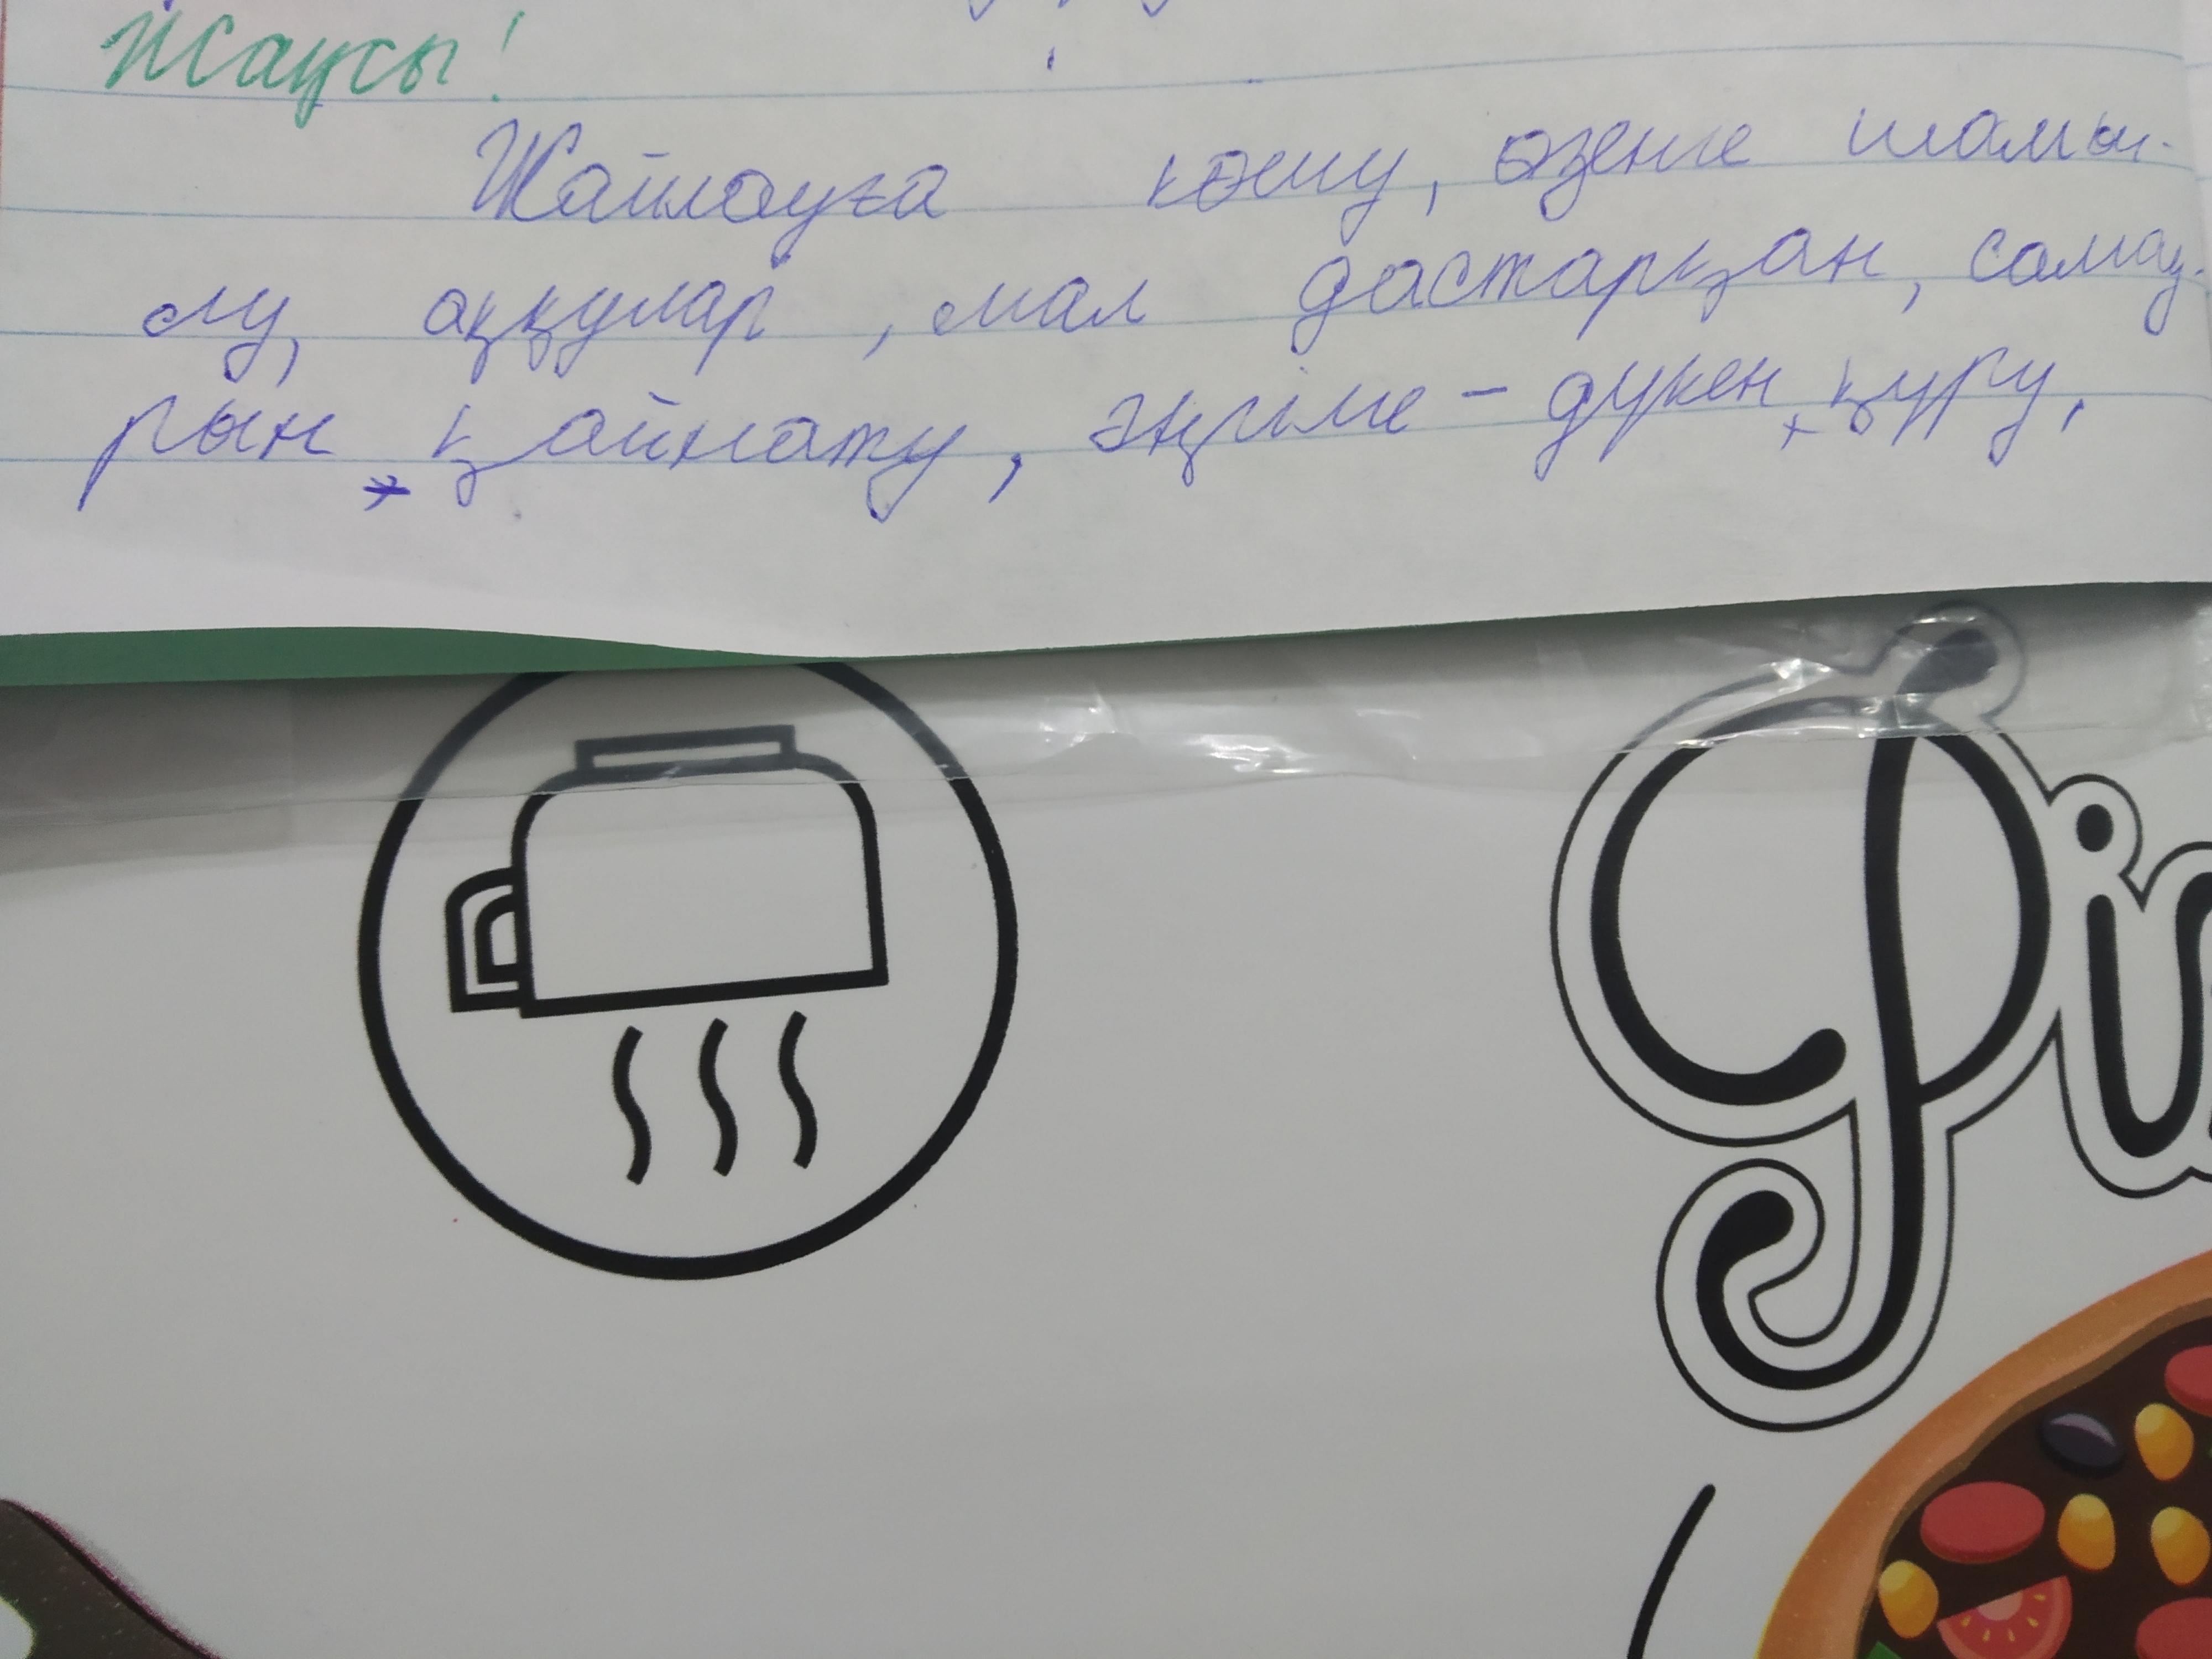 Жақсы!
Жайлауға көшу, өзенге шомы-
лу, аққулар, мал дастарқан, самау-
рын қайнату, әңгіме - дүкен құру,